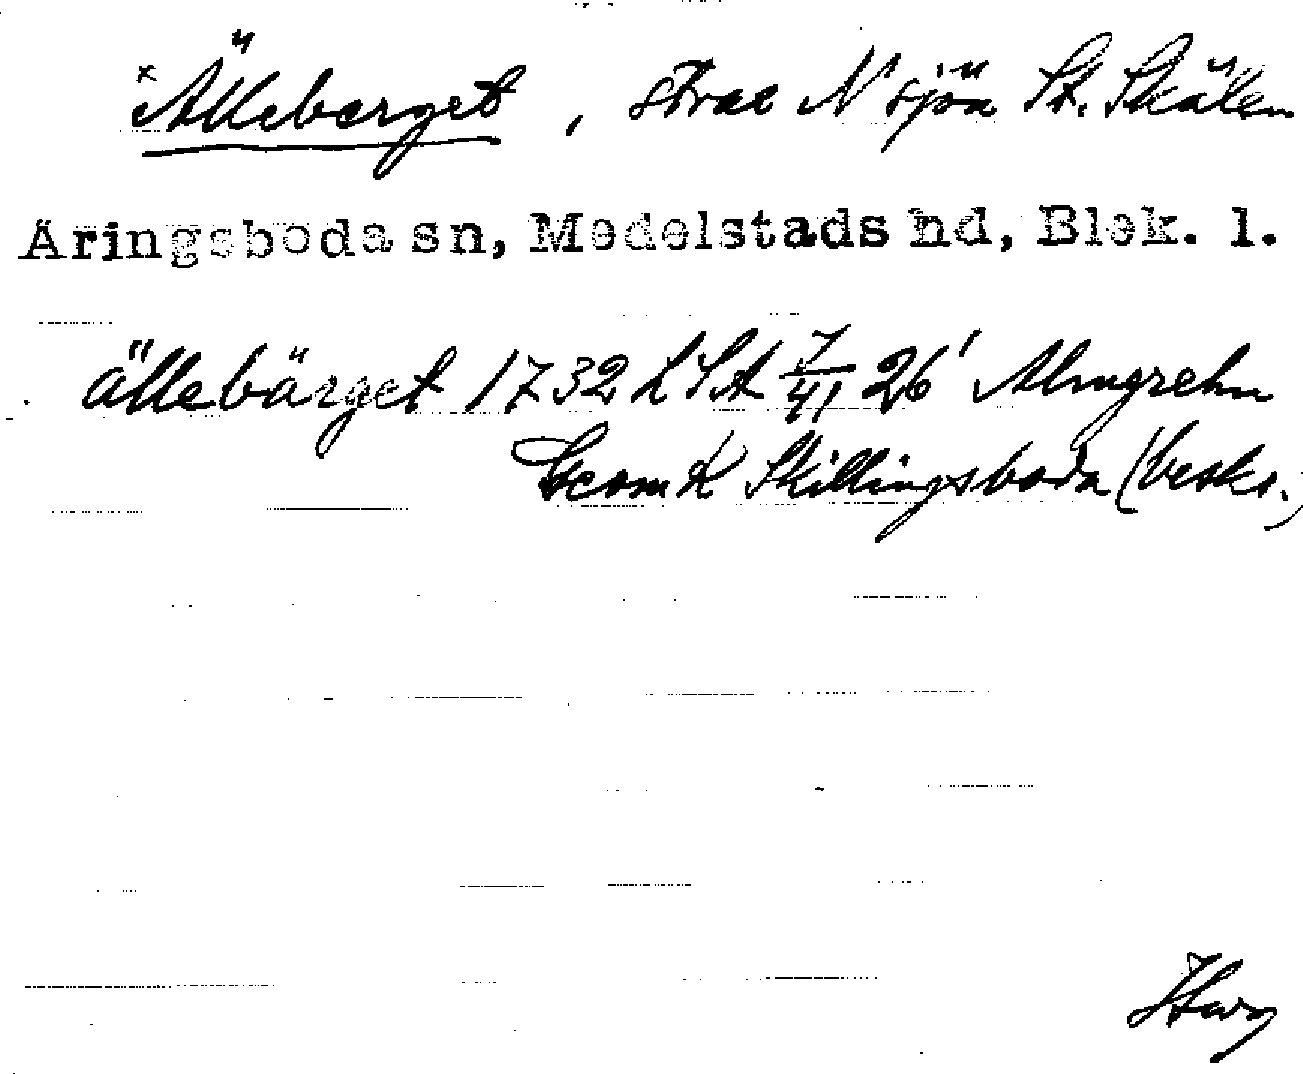 × Älleberget, strax N sjön St. Skälen
Äringsboda sn, Medelstads hd, Blek. l.
ällebärget 1732 LSA 7/41 26' Almgrehn
Geom K Skillingsboda (beskr.)